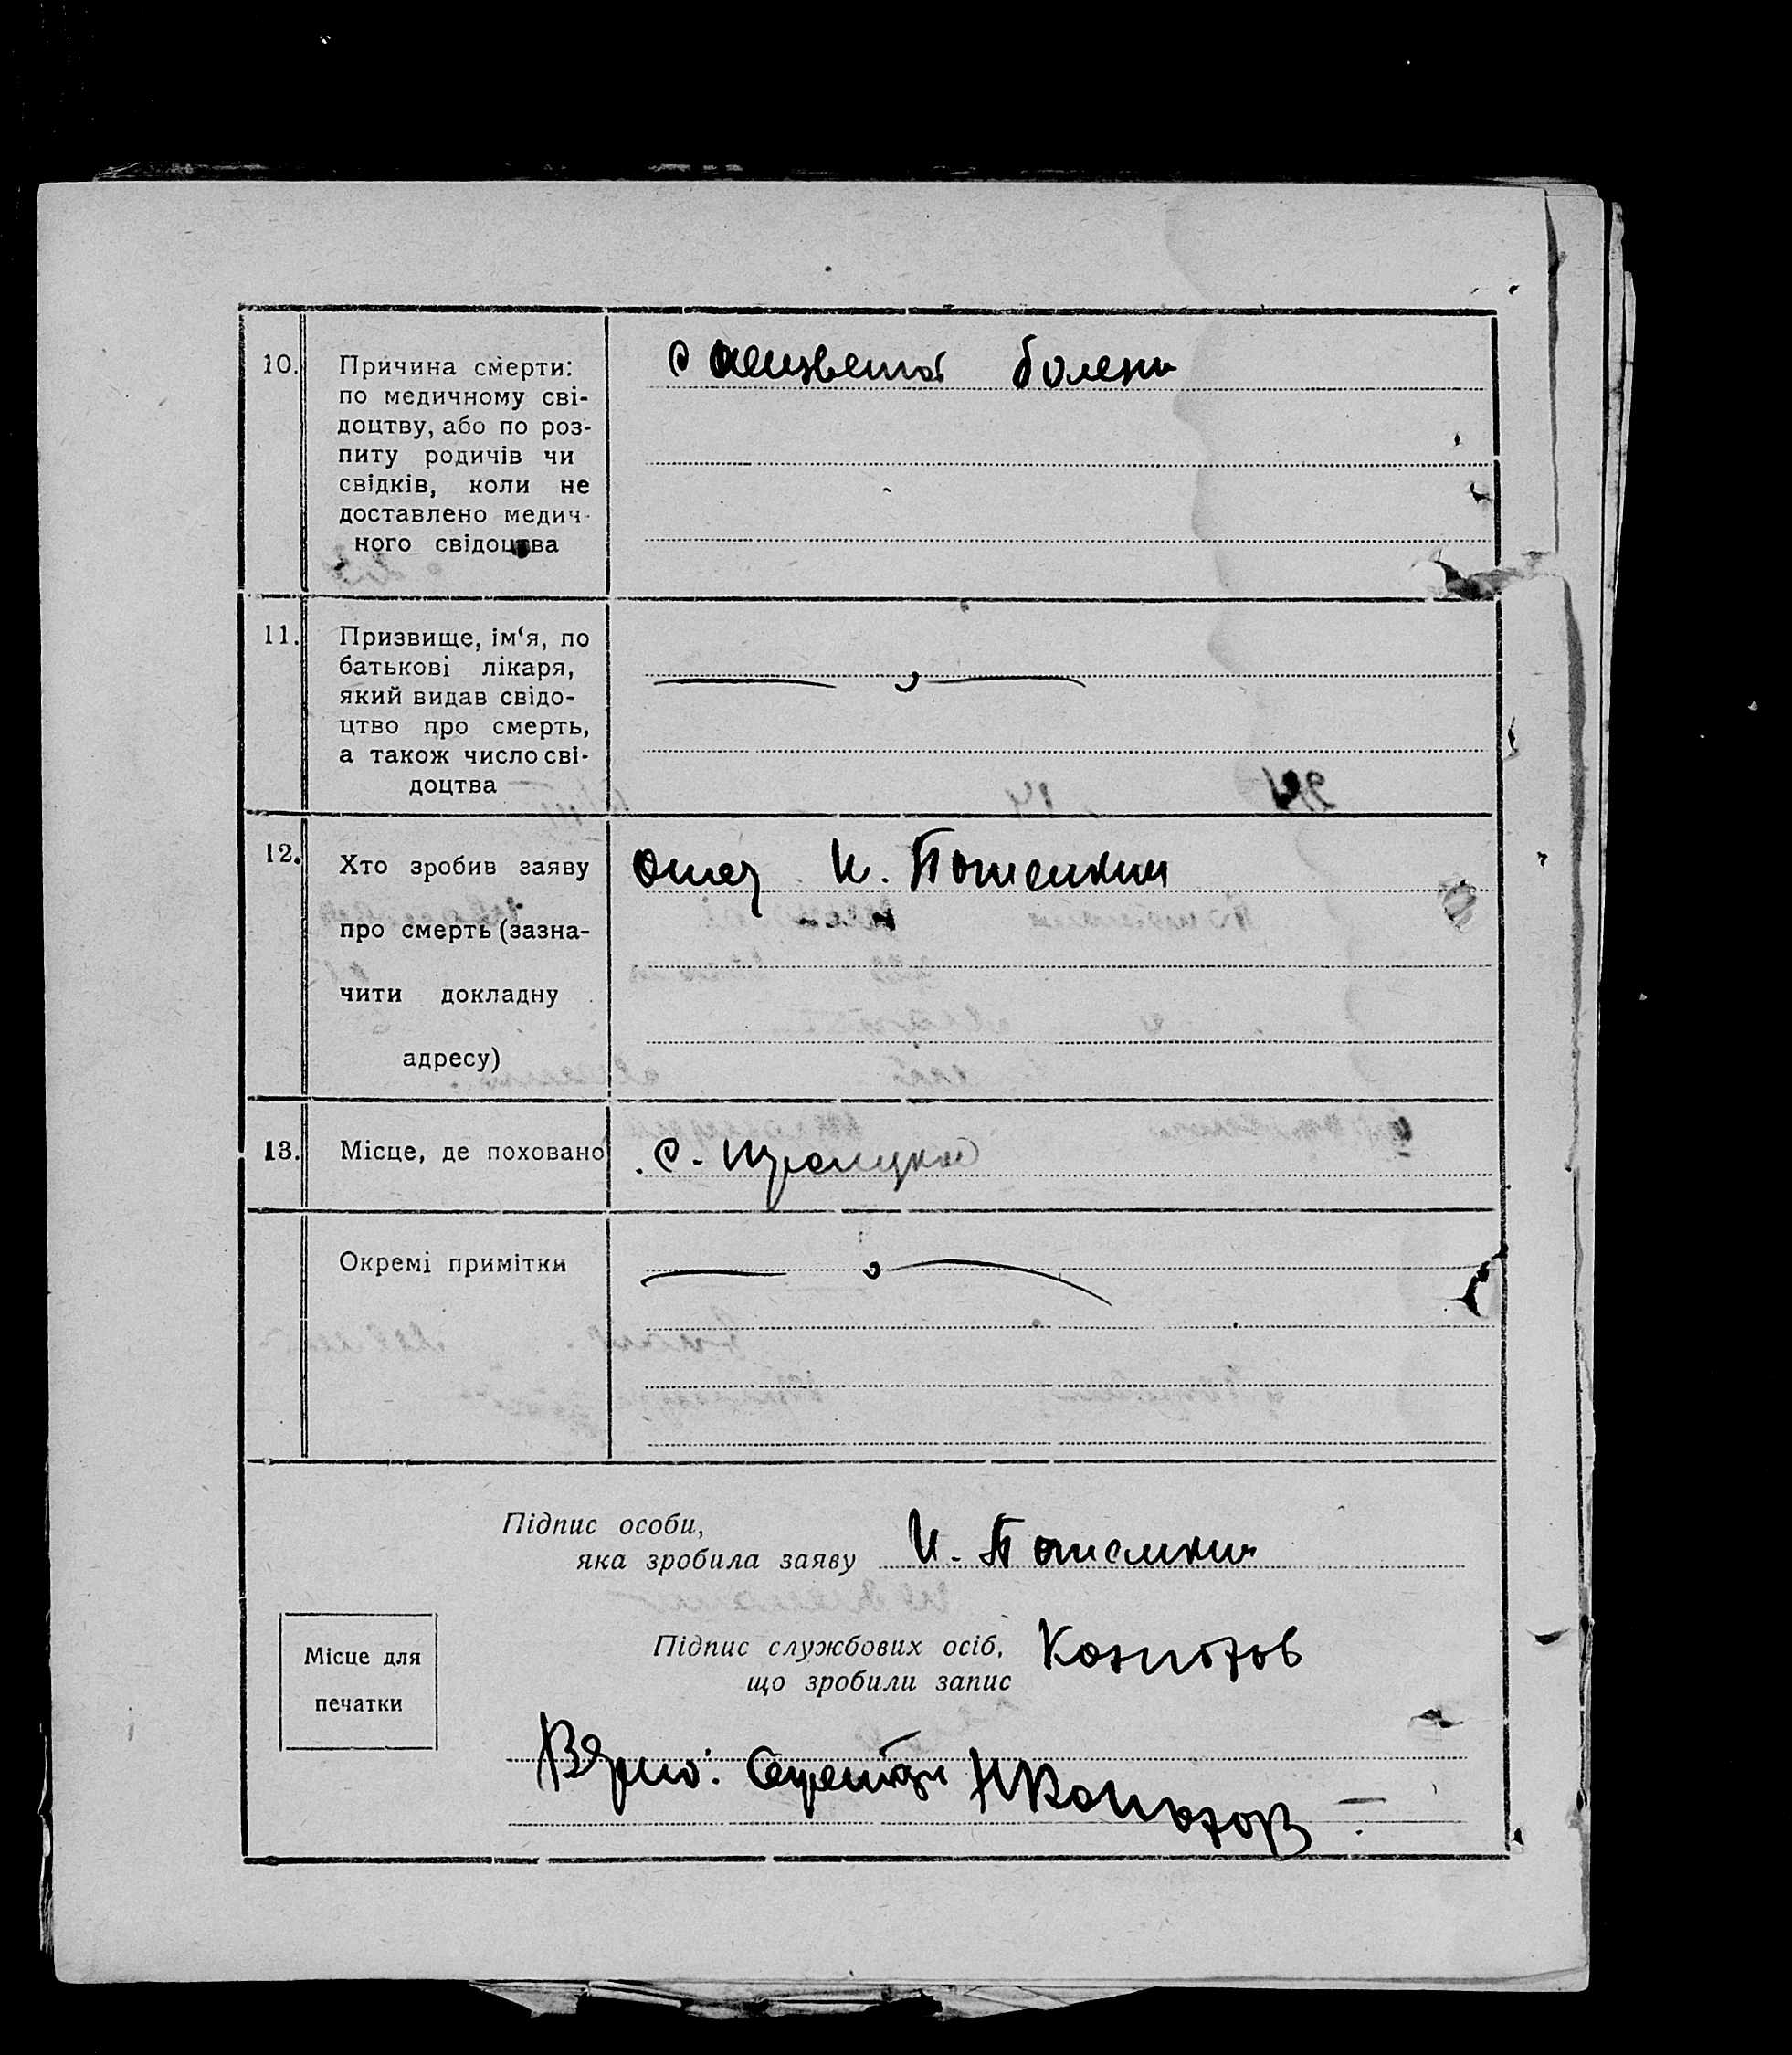 10.
Причина смерти:
по медичному сві-
доцтву, або по роз-
питу родичів чи
свідків, коли не
доставлено медич-
ного свідоцтва
болезни
11.
Призвище, ім‘я, по
батькові лікаря,
який видав свідо-
цтво про смерть,
а також число сві-
доцтва
12.
Хто зробив заяву
про смерть (зазна-
чити докладну
адресу)
Отец И. Потемкин
13.
Місце, де поховано
с.
Окремі примітки
Підпис особи,
яка зробила заяву И. Потемкин
Місце для
печатки
Підпис службових осіб,
що зробили запис